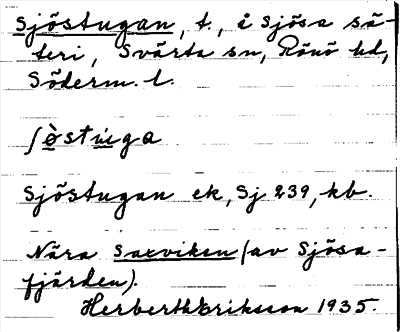 Sjöstugan, t., å Sjösa sä-
teri, Svärta sn, Rönö hd,
Söderm. l.
ʃö̀stuga
Sjöstugan ek, Sj 239, kb.
Nära Saxviken (av Sjösa-
fjärden).
Herbert Eriksson 1935.